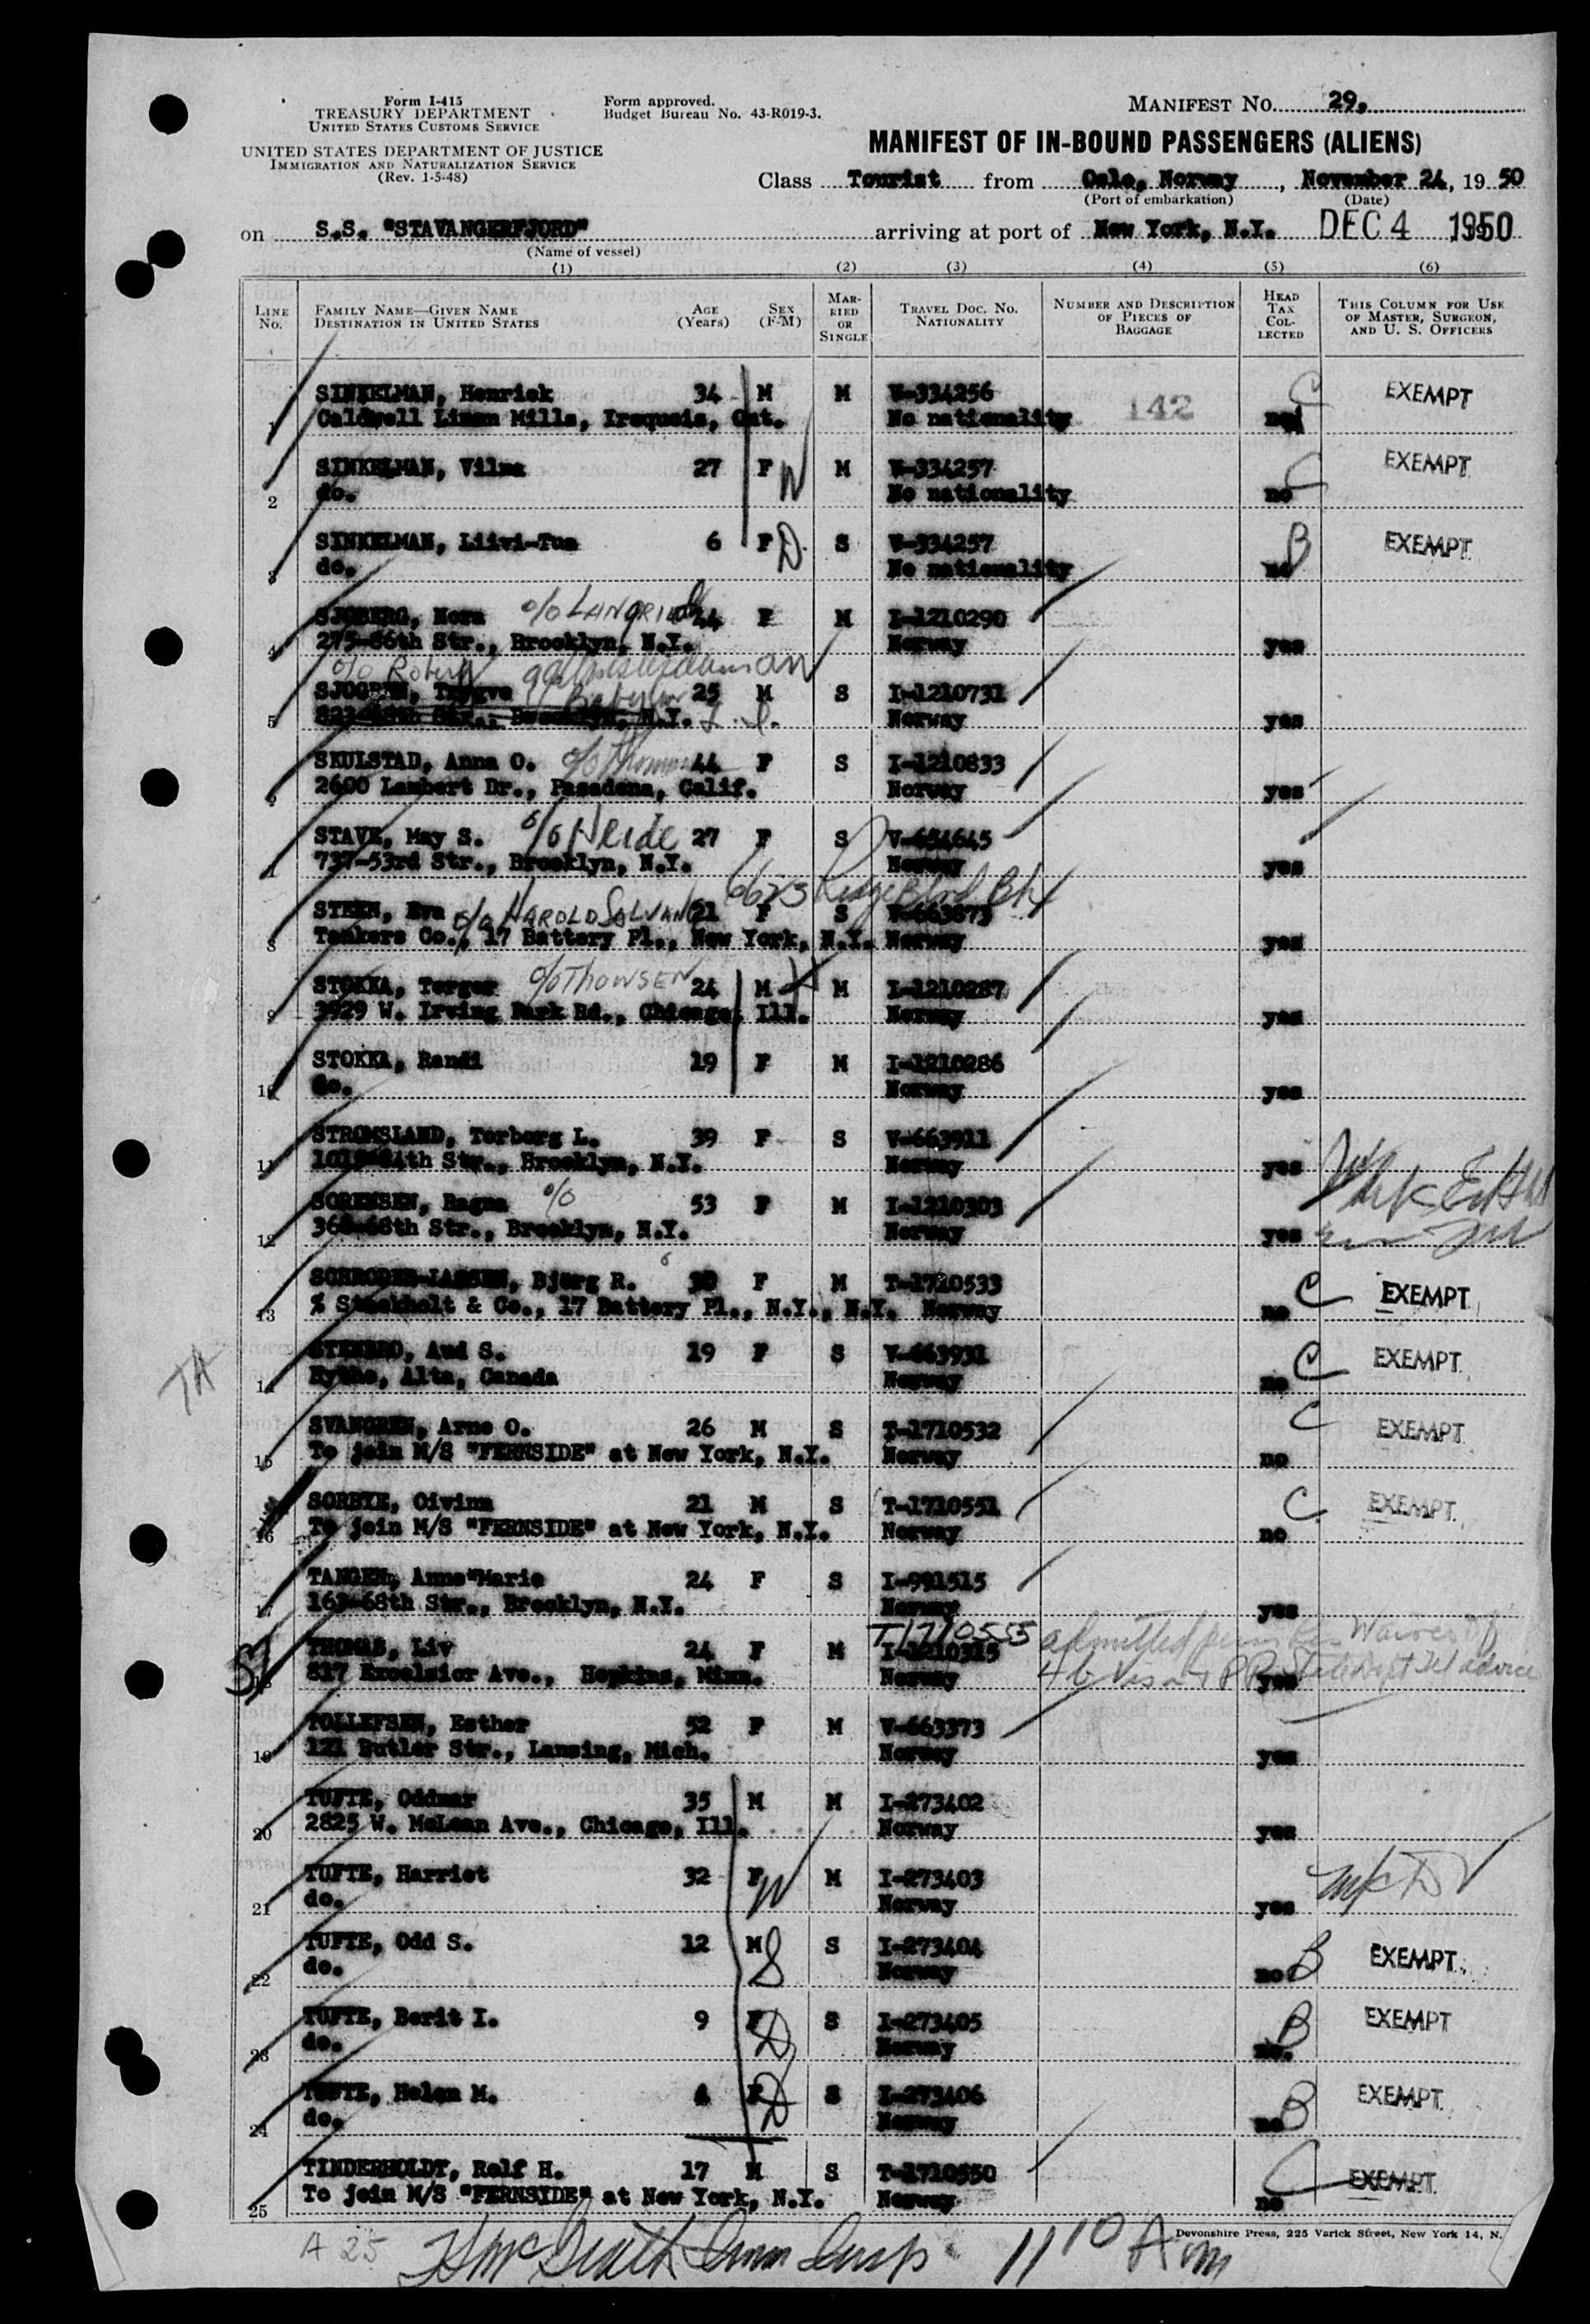 Form I-415
TREASURY DEPARTMENT
UNITED STATES CUSTOMS SERVICE
UNITED STATES DEPARTMENT OF JUSTICE
IMMIGRATION AND NATURALIZATION SERVICE
(Rev. 1-5-48)
Form approved.
Budget Bureau No. 43-R019-3.
MANIFEST NO. 29.
MANIFEST OF IN-BOUND PASSENGERS (ALIENS)
Class Tourist from Oslo, Norway, November 24, 19 50
(Port of embarkation) (Date)
on S.S. "STAVANGERFJORD" arriving at port of New York, N.Y. DEC 4 1950
(Name of vessel)
(1) (2) (3) (4) (5) (6)
LINE No. FAMILY NAME—GIVEN NAME DESTINATION IN UNITED STATES AGE (Years) SEX (F-M) MARRIED OR SINGLE TRAVEL DOC. NO. NATIONALITY NUMBER AND DESCRIPTION OF PIECES OF BAGGAGE HEAD TAX COLLECTED THIS COLUMN FOR USE OF MASTER, SURGEON, AND U. S. OFFICERS
SINKELMAN, Henrick 34 M M V-334256 C EXEMPT
1 Caldwell Linen Mills, Iroquois, Ont. No nationality 142 no
SINKELMAN, Vilma 27 F W M V-334257 C EXEMPT
2 do. No nationality no
SINKELMAN, Liivi-Tua 6 F D S V-334257 B EXEMPT
3 do. No nationality no
SJOBERG, Nora 44 F M I-1210290
4 275-86th Str., Brooklyn, N.Y. Norway yes
c/o Robert
SJOGREN, Trygve Babylon 25 M S I-1210731
5 Brooklyn, N.Y. L.I. Norway yes
SKULSTAD, Anna O. c/o 44 F S I-1210833
6 2600 Lambert Dr., Pasadena, Calif. Norway yes
STAVE, May S. c/o Heide 27 F S V-654645
7 737-53rd Str., Brooklyn, N.Y. Norway yes
6623 Ridge Blvd Bk
STEEN, Eva c/o HAROLD SALVANG 21 F S V-663873
8 Tankers Co., 17 Battery Pl., New York, N.Y. Norway yes
STOKKA, Torger c/o THOWSEN 24 M M I-1210287
9 3929 W. Irving Park Rd., Chicago, Ill. Norway yes
STOKKA, Randi 19 F M I-1210286
10 do. Norway yes
STROMSLAND, Torborg L. 39 F S V-663911
11 Brooklyn, N.Y. Norway yes
SORENSEN, Ragna c/o 53 F M I-1210303
12 368-68th Str., Brooklyn, N.Y. Norway yes
SCHRODER-JANSEN, Bjørg R. 30 F M T-1710533 C EXEMPT
13 % Stockholt & Co., 17 Battery Pl., N.Y., N.Y. Norway no
STENBRO, Aud S. 19 F S V-663931 C EXEMPT
TA
14 Hythe, Alta, Canada Norway no
SVANGREN, Arne O. 26 M S T-1710532 C EXEMPT
15 To join M/S "FERNSIDE" at New York, N.Y. Norway no
SORBYE, Oivinn 21 M S T-1710551 C EXEMPT
16 To join M/S "FERNSIDE" at New York, N.Y. Norway no
TANGEN, Anne Marie 24 F S I-991515
17 163-68th Str., Brooklyn, N.Y. Norway yes
T1710555 admitted Waiver of
THOMAS, Liv 24 F M I-1210315
18 817 Excelsior Ave., Hopkins, Minn. Norway 4b visa & PP State Dept Tel advice yes
TOLLEFSEN, Esther 52 F M V-663373
19 121 Butler Str., Lansing, Mich. Norway yes
TUFTE, Oddmar 35 M M I-273402
20 2825 W. McLean Ave., Chicago, Ill. Norway yes
TUFTE, Harriet 32 F W M I-273403
21 do. Norway yes
TUFTE, Odd S. 12 M S S I-273404 EXEMPT
22 do. Norway no B
TUFTE, Berit I. 9 F D S I-273405 B EXEMPT
23 do. Norway no.
TUFTE, Helen M. 4 F D S I-273406 B EXEMPT
24 do. Norway no
TINDERHOLDT, Rolf H. 17 M S T-1710550 C EXEMPT
25 To join M/S "FERNSIDE" at New York, N.Y. Norway no
Devonshire Press, 225 Varick Street, New York 14, N.
A 25 11 10 Am